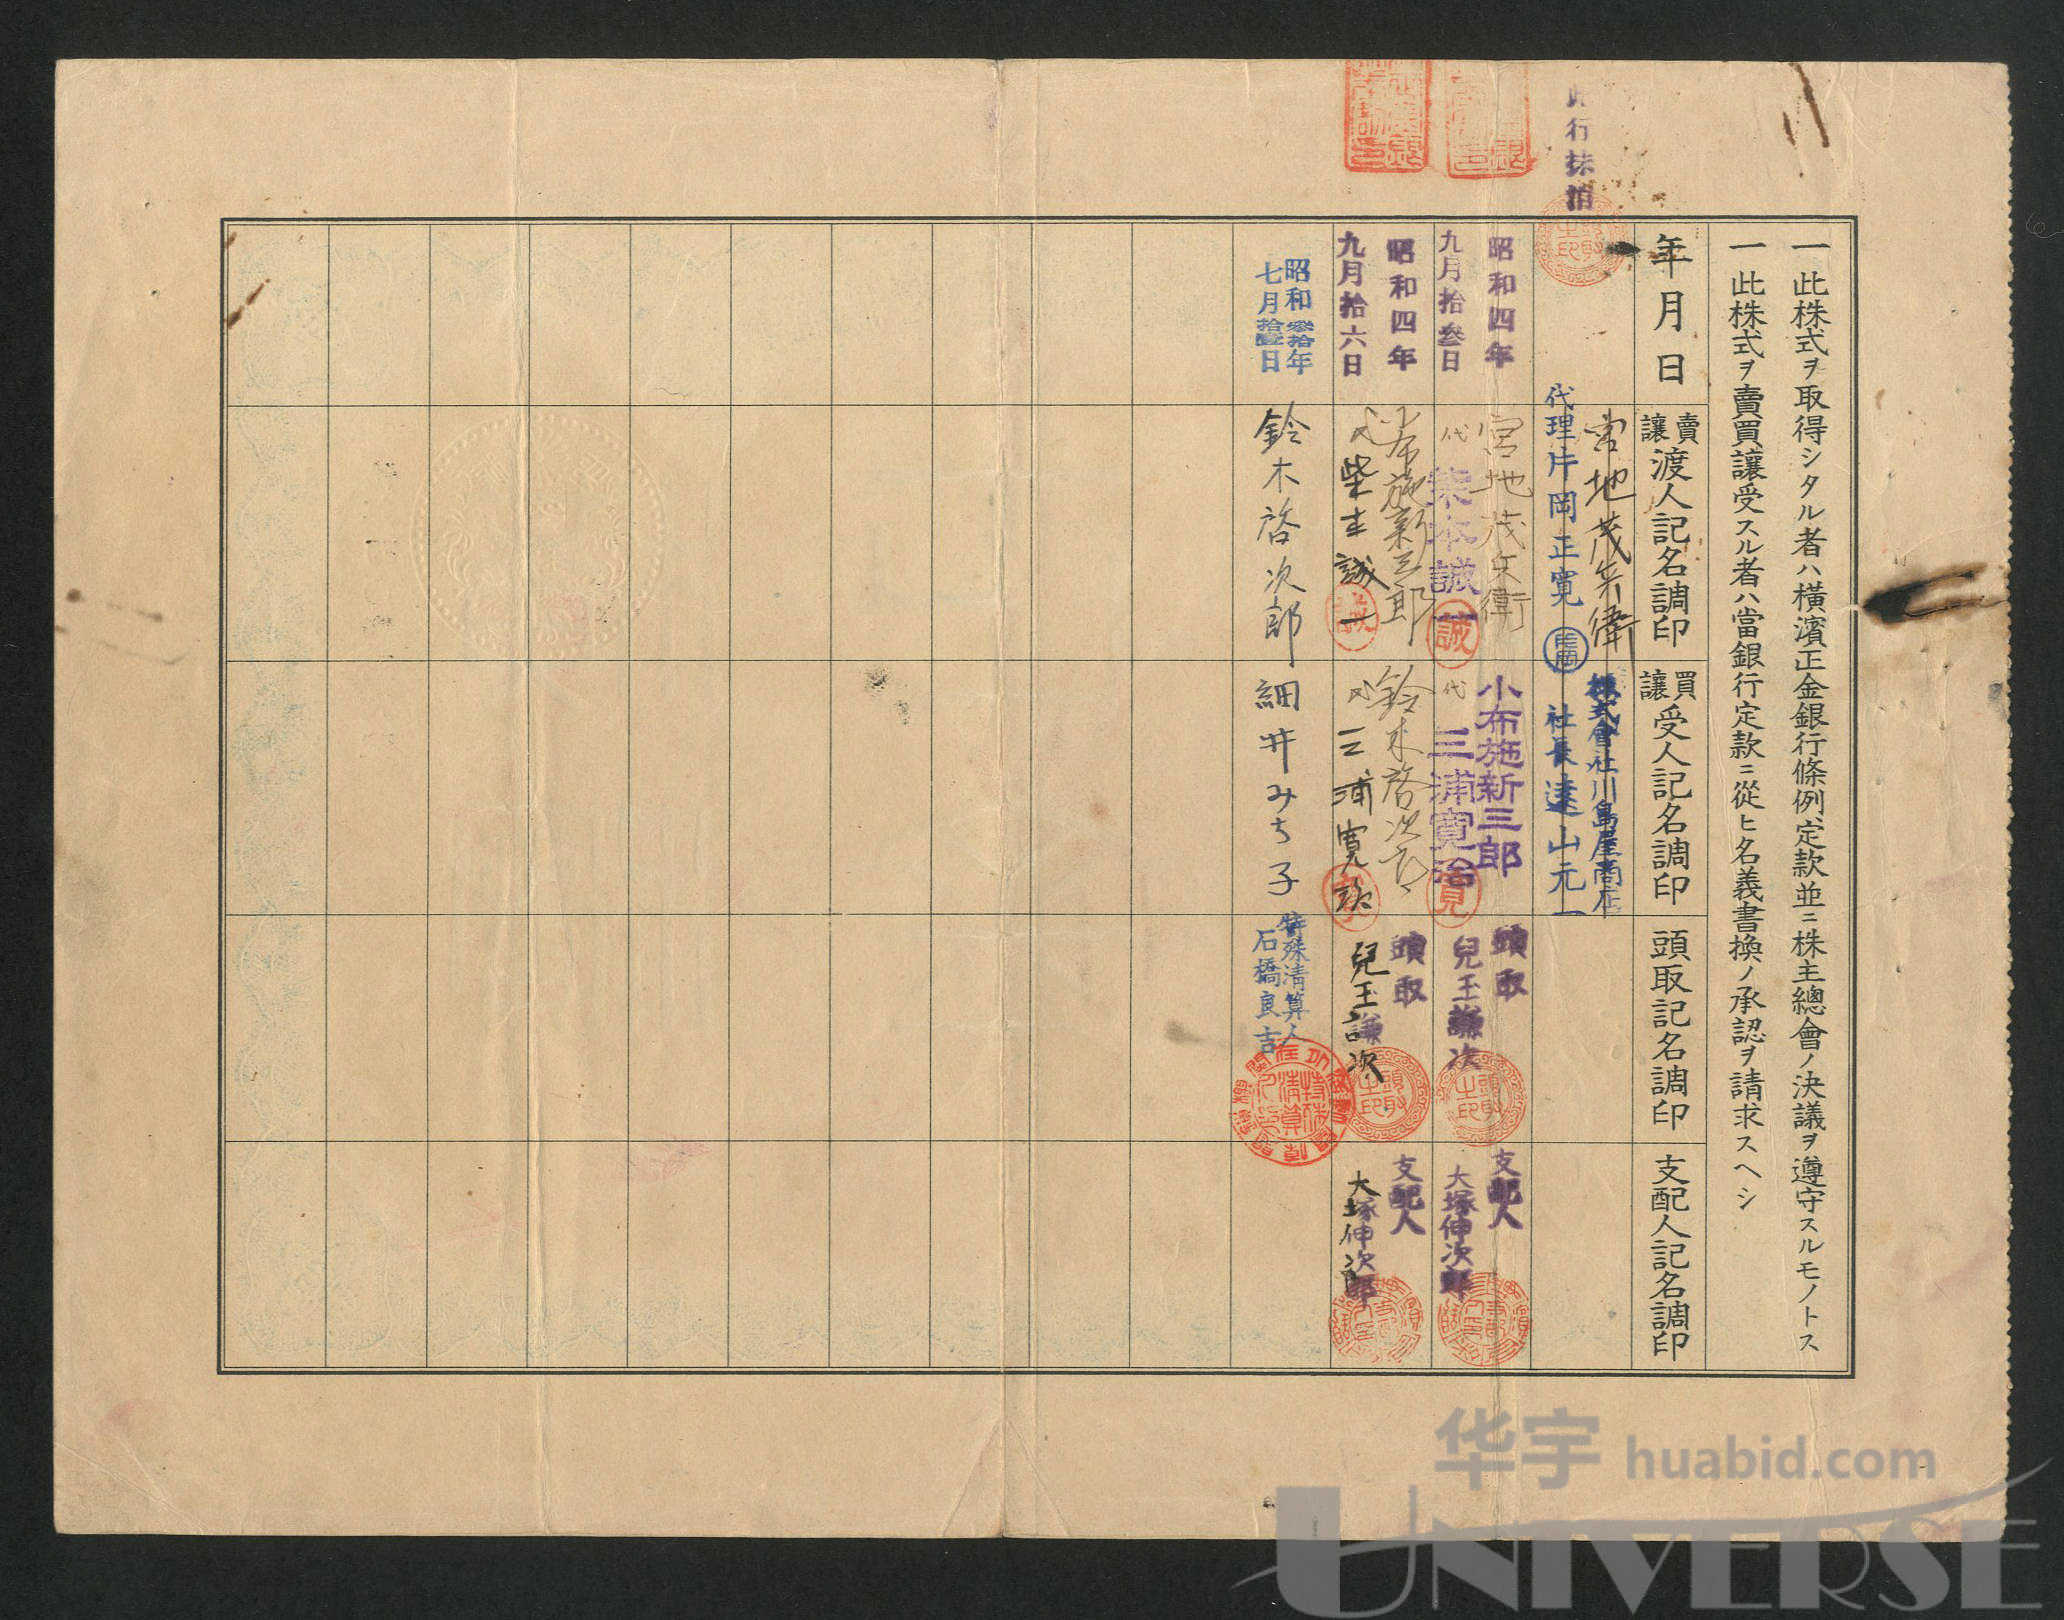 一此株式ヲ取得シタル者ハ橫濱正金銀行條例定款並ニ株主總會ノ決議ヲ遵守スルモノトス
一此株式ヲ賣買讓受スル者ハ當銀行定款ニ從ヒ名義書換ノ承認ヲ請求スヘシ
年月日
賣讓渡人記名調印
買讓受人記名調印
頭取記名調印
支配人記名調印
行抹消
宮地茂兵衛
代理片岡正寛
株式會社川島屋商店
社長遠山元一
昭和四年
九月拾叁日
宮地茂兵衛
代
誠一
誠
小布施新三郎
代
三浦寛治
寛
頭取
兒玉謙次
頭取之印
支配人
大塚伸次郎
昭和四年
九月拾六日
小布施新三郎
代柴本誠一
誠
鈴木啓次郎
代三浦寛治
寛
頭取
兒玉謙次
頭取之印
支配人
大塚伸次郎
昭和叁拾年
七月拾壹日
鈴木啓次郎
細井みち子
特殊清算人
石橋良吉
华宇 huabid.com
UNIVERSE